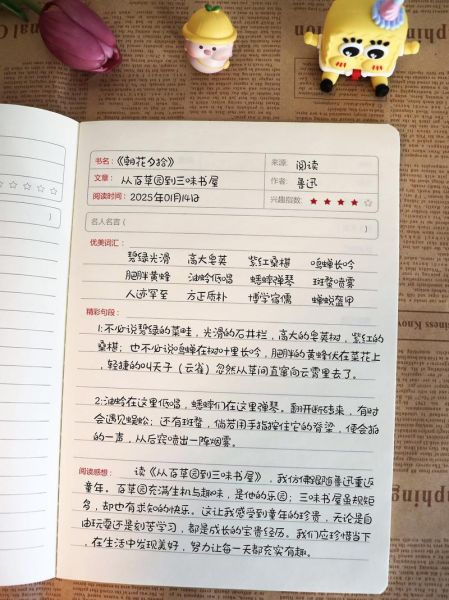 书名：《朝花夕拾》
来源: 阅读
文章： 从百草园到三味书屋
作者: 鲁迅
阅读时间： 2025年01月14日
兴趣指数:
名人名言 (
)
优美词汇：
碧绿光滑 高大皂荚 紫红桑椹 鸣蝉长吟
肥胖黄蜂 油蛉低唱 蟋蟀弹琴 斑蝥喷雾
人迹罕至 方正质朴 博学宿儒 蝉蜕盔甲
精彩句段：
1:不必说碧绿的菜畦，光滑的石井栏，高大的皂荚树，紫红的
桑椹；也不必说鸣蝉在树叶里长吟，肥胖的黄蜂伏在菜花上
，轻捷的叫天子（云雀）忽然从草间直窜向云霄里去了。
2:油蛉在这里低唱，蟋蟀们在这里弹琴。翻开断砖来，有时
会遇见蜈蚣；还有斑蝥，倘若用手指按住它的脊梁，便会拍
的一声，从后窍喷出一阵烟雾。
阅读感想： 读《从百草园到三味书屋》，我仿佛跟随鲁迅重返
童年。百草园充满生机与趣味，是他的乐园；三味书屋虽规矩
多，却也有求知的快乐。这让我感受到童年的珍贵，无论是自
由玩耍还是刻苦学习，都是成长的宝贵经历。我们应珍惜当下
，在生活中发现美好，努力让每一天都充实有趣。